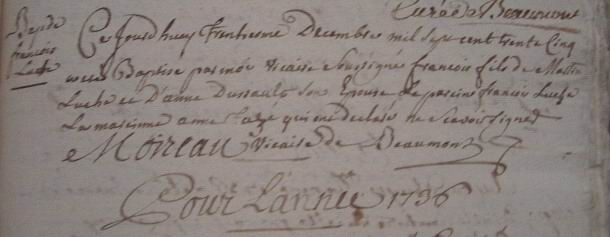 Curé de Beaumont
Bap de
françois
Luché
Ce Jourdhuy Trentiesme Decembre mil sept cent trente Cinq
a esté Baptisé par moy Vicaire Soussigné François fils de Martin
Luché et D'anne Dussault Son Epouse Le parein François Luché
La mareinne anne qui ont declaré ne Scavoir signer
Moireau Vicaire de Beaumont
Pour L'année 1736